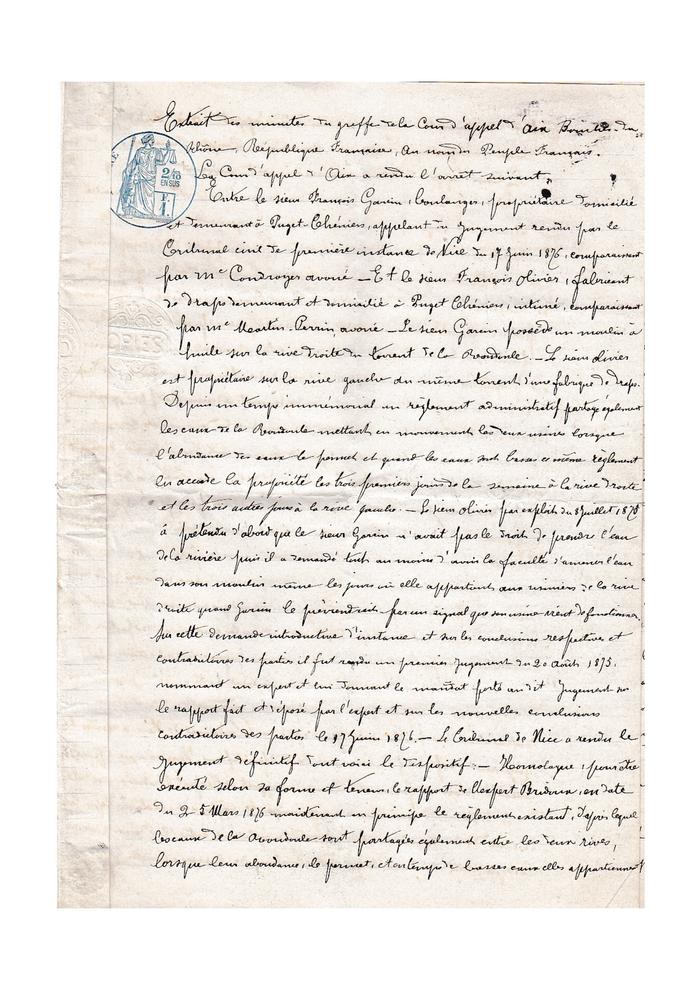 Extrait des minutes du greffe de la Cour d'appel d'Aix Bouches-du
Rhône, République Française, Au nom du Peuple Français.
La Cour d'appel d'Aix a rendu l'arrêt suivant,
2/10
EN SUS
Entre le sieur François Garin, boulanger, propriétaire domicilié
et demeurant à Puget-Théniers, appelant du jugement rendu par le
Tribunal civil de première instance de Nice du 17 Juin 1876, comparaissant
par me avoué – Et le sieur François Olivier, fabricant
de draps demeurant et domicilié à Puget Théniers, intimé, comparaissant
par me Martin-Perrin, avoué – Le sieur Garin possède un moulin à
huile sur la rive droite du torrent de la Roudoule. – Le sieur Olivier
est propriétaire sur la rive gauche du même torrent d'une fabrique de draps.
Depuis un temps immémorial un règlement administratif partage également
les eaux de la Roudoule mettant en mouvement les deux usines lorsque
l'abondance des eaux le permet et quand les eaux sont basses ce même règlement
en accorde la propriété les trois premiers jours de la semaine à la rive droite
et les trois autres jours à la rive gauche. – Le sieur Olivier par exploit du 8 Juillet
a prétendu d'abord que le sieur Garin n'avait pas le droit de prendre l'eau
de la rivière puis il a demandé tout au moins d'avoir la faculté d'amener l'eau
dans son moulin même les jours où elle appartient aux usiniers de la rive
droite quand Garin le préviendrait par un signal que son usine vient de fonctionner.
Sur cette demande introductive d'instance et sur les conclusions respectives et
contradictoires des parties il fut rendu un premier jugement du 20 Août 1875.
nommant un expert et lui donnant le mandat porté au dit Jugement sur
le rapport fait et déposé par l'expert et sur les nouvelles conclusions
contradictoires des parties le 17 Juin 1876. – Le Tribunal de Nice a rendu le
jugement définitif dont voici le dispositif: – Homologue, pour être
exécuté selon sa forme et teneur, le rapport de l'expert en date
du 25 Mars 1876 maintenant en principe le règlement existant, d'après lequel
les eaux de la Roudoule sont partagées également entre les deux rives,
lorsque leur abondance, le permet, et en temps de basses eaux elles appartiennent